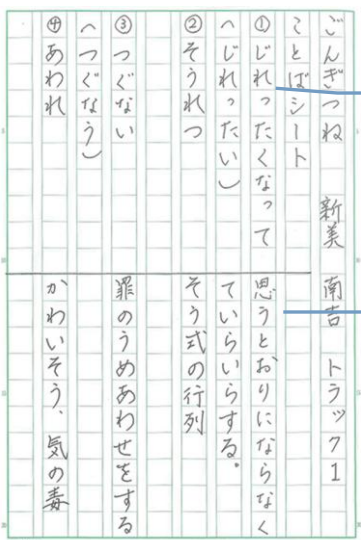 ごんぎつね　新美　南吉　トラック1
ことばシート
①じれったくなって
（じれったい）
思うとおりにならなく
ていらいらする。
②そうれつ
そう式の行列
③つぐない
（つぐなう）
罪のうめあわせをする
④あわれ
かわいそう、気の毒